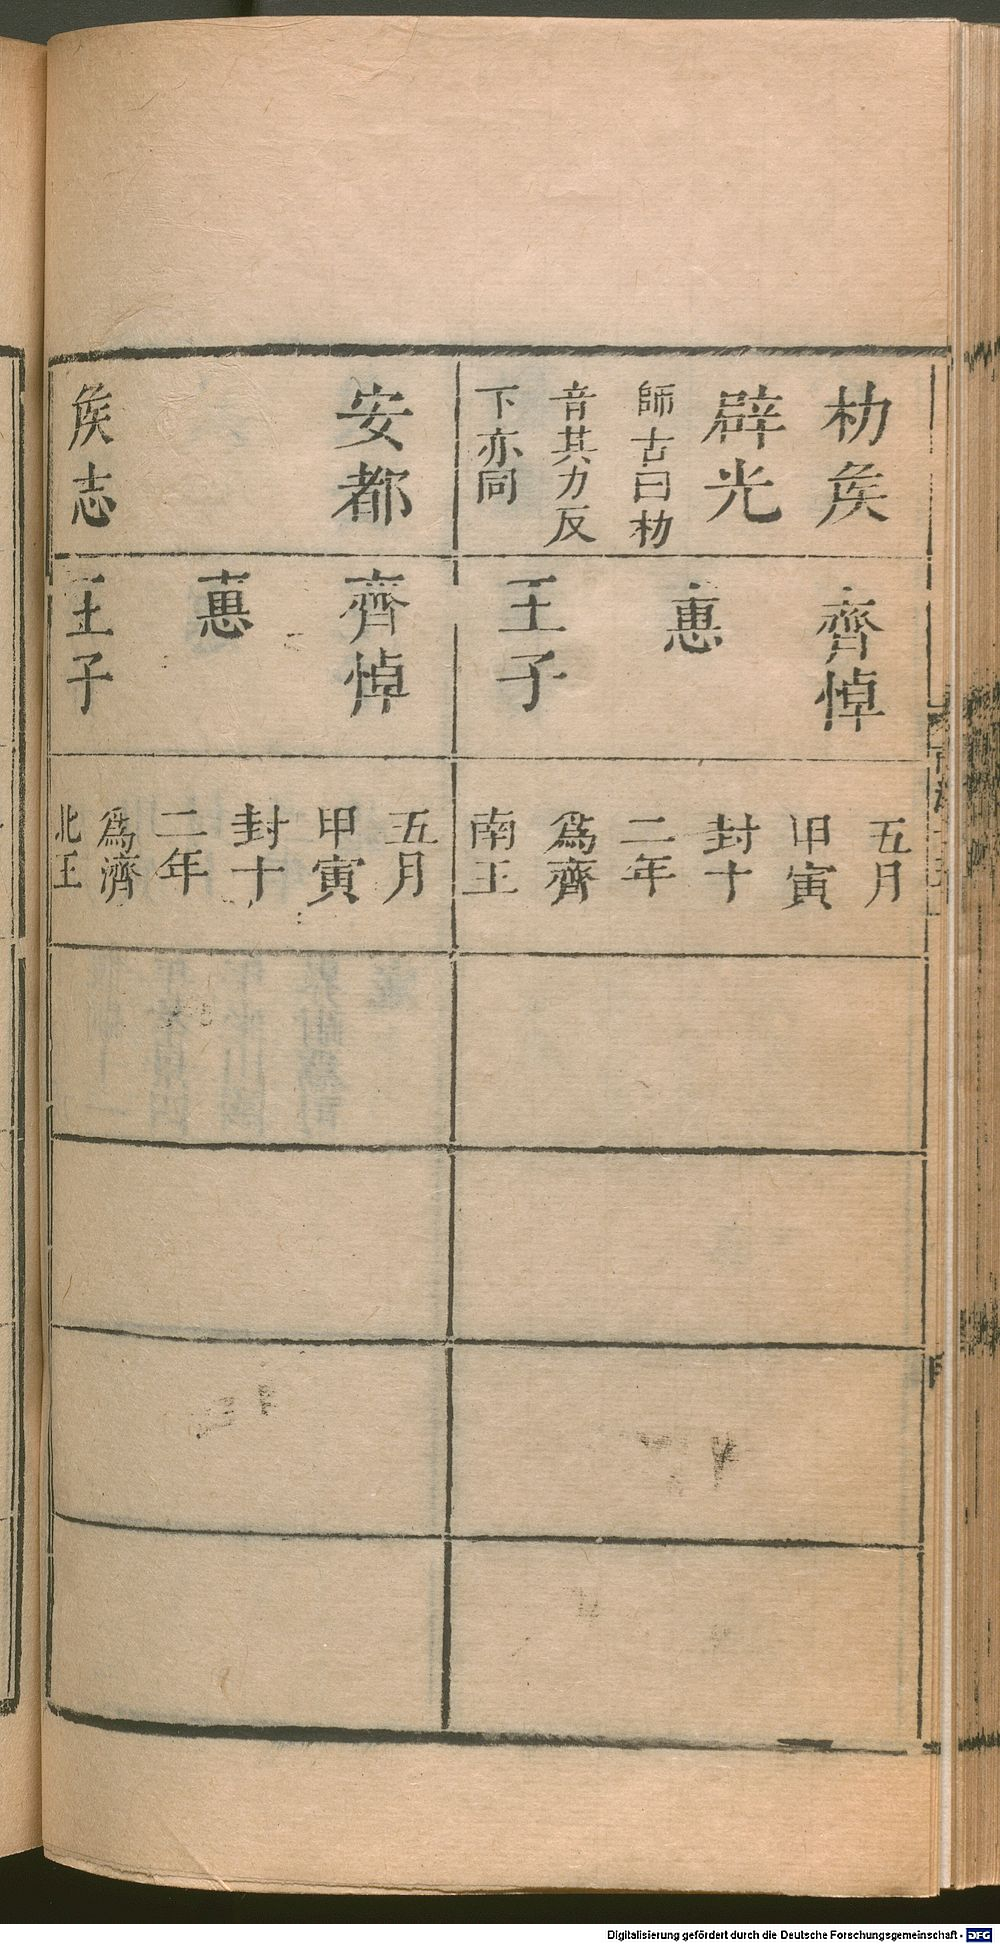 朸矦
辟光
師古曰朸
音其力反
下亦同
齊悼
惠
王子
五月
甲寅
封十
二年
爲齊
南王
安都
矦志
齊悼
惠
王子
五月
甲寅
封十
二年
爲濟
北王
Digitalisierung gefördert durch die Deutsche Forschungsgemeinschaft - DFG